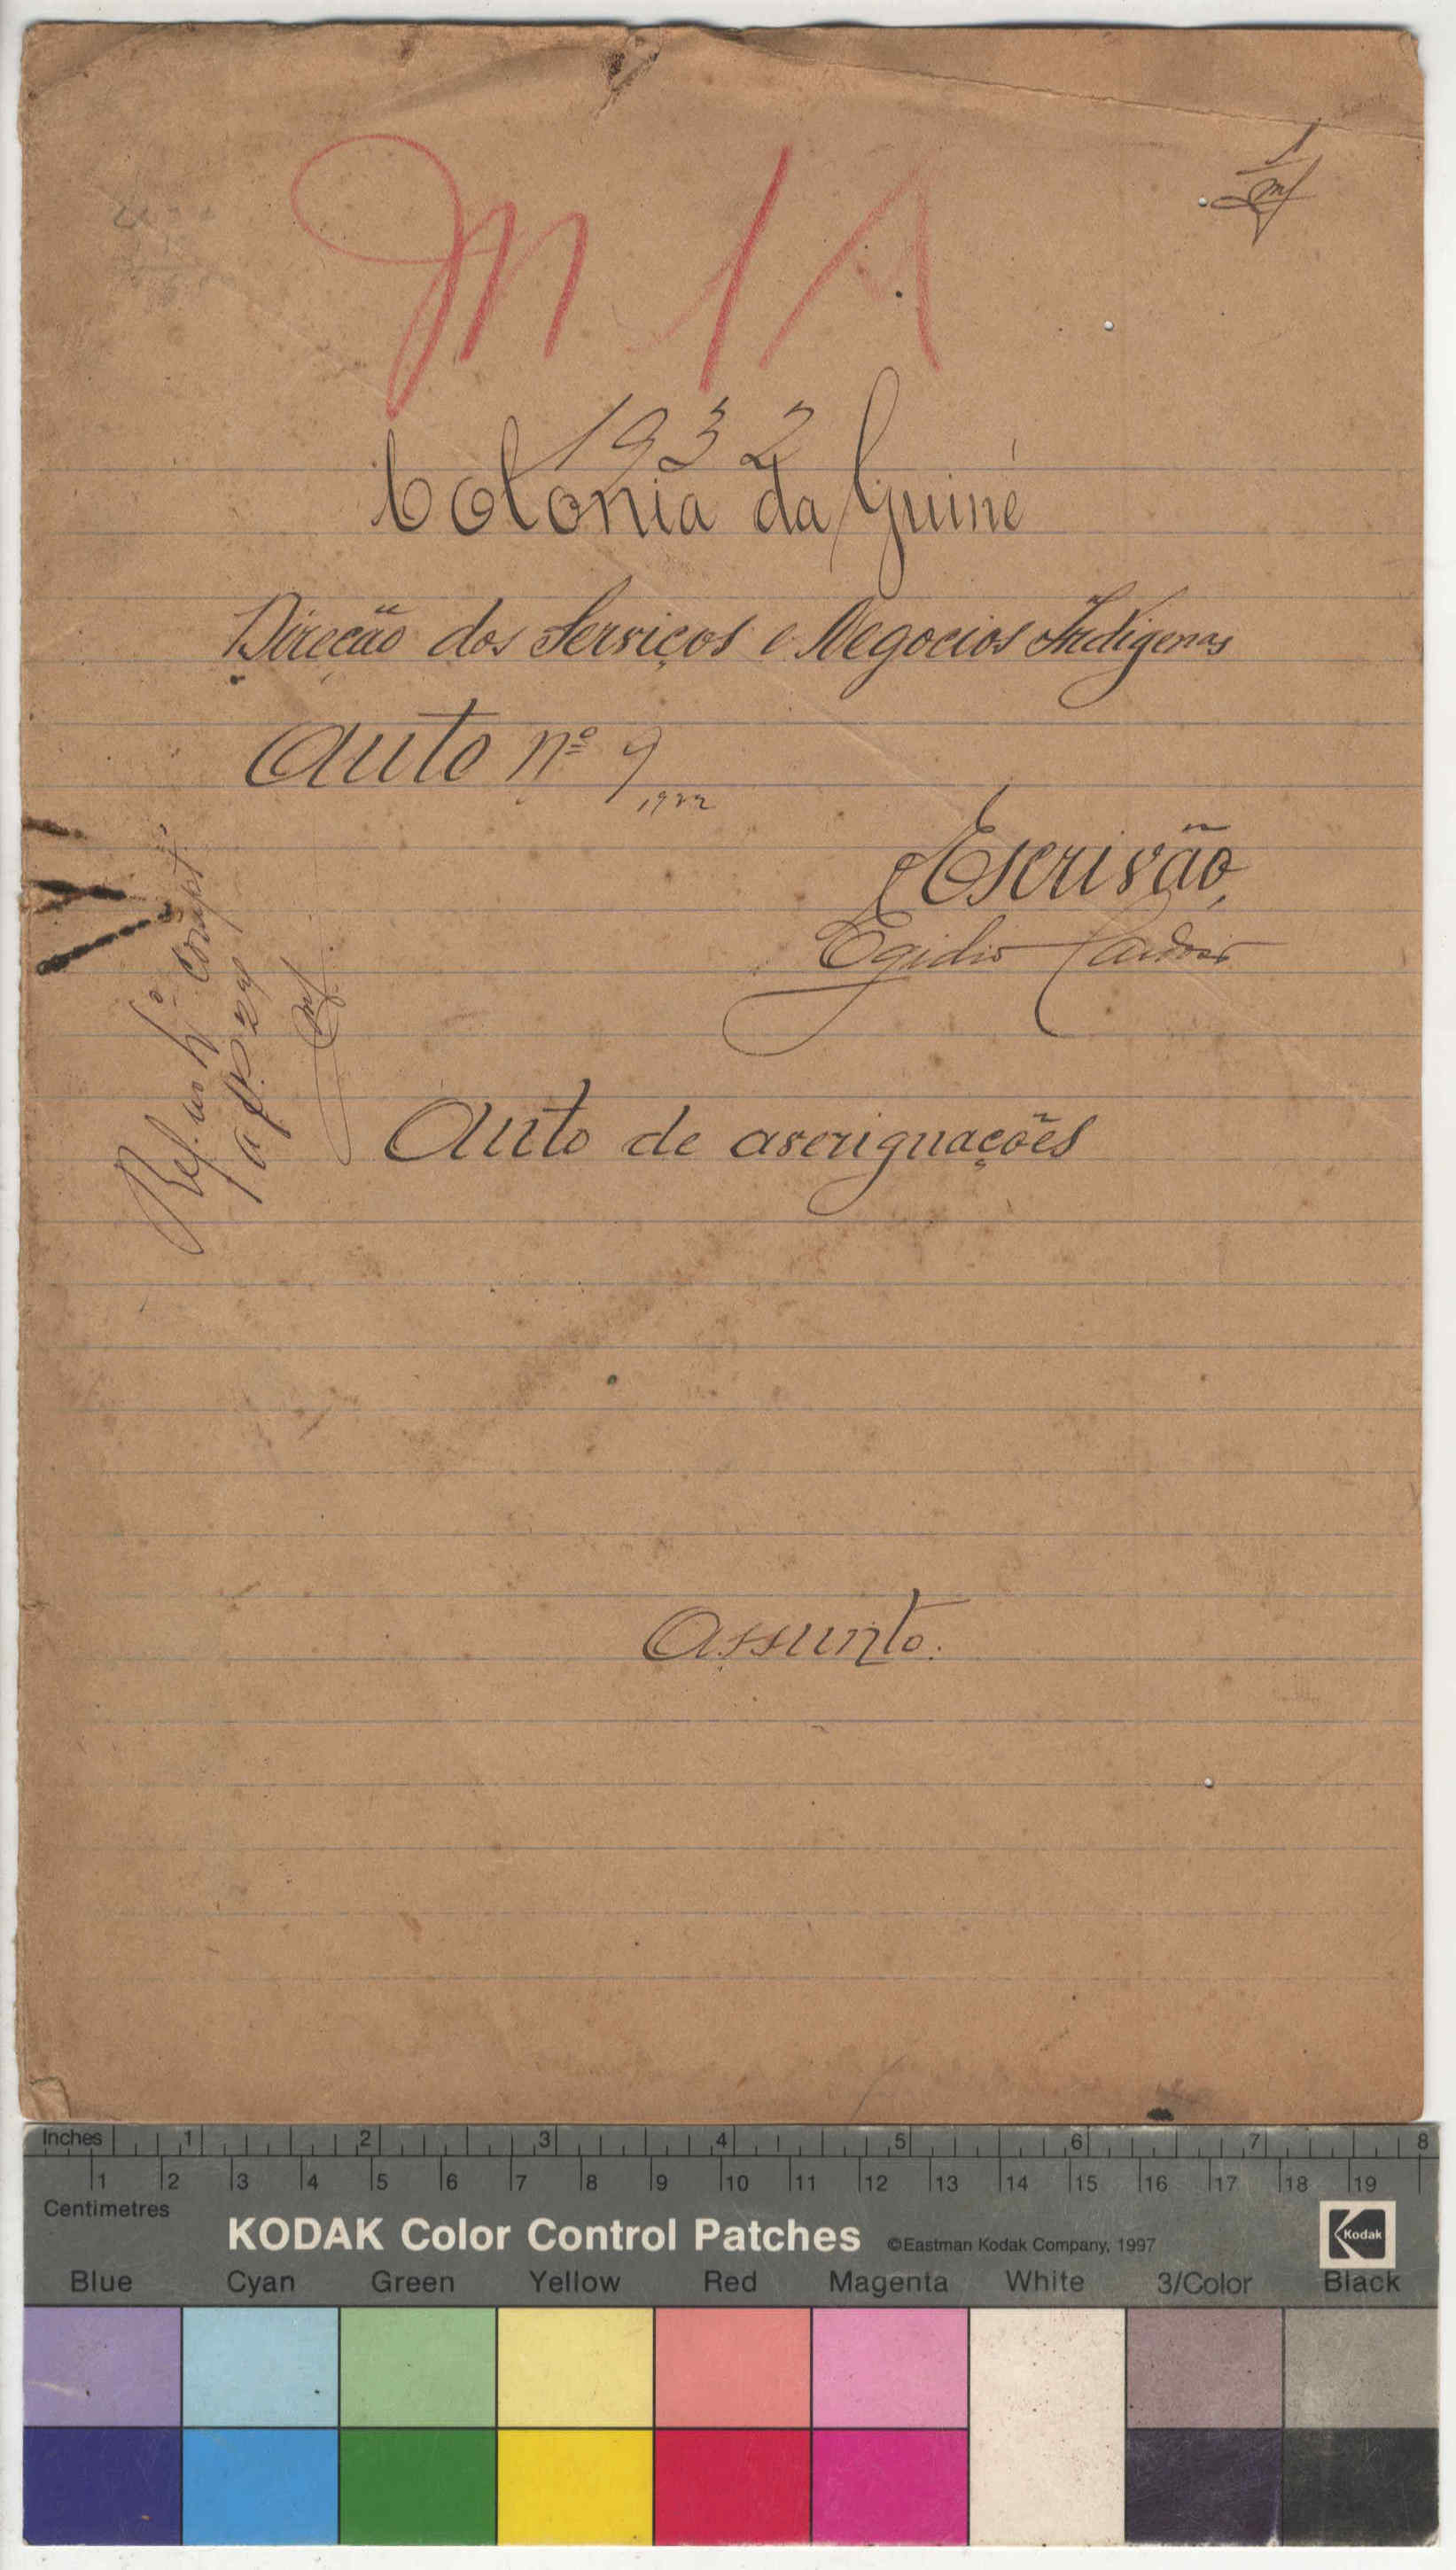 M 1A
1
1932
Colonia da Guiné
Direcão dos Serviços e Negocios Indigenas
Auto nº 9
1932
Escrivão,
Egidio Cardoso
Ref. no
a f.
Auto de averiguações
Assunto.
Inches 1 2 3 4 5 6 7 8
1 2 3 4 5 6 7 8 9 10 11 12 13 14 15 16 17 18 19
Centimetres
KODAK Color Control Patches ©Eastman Kodak Company, 1997 Kodak
Blue Cyan Green Yellow Red Magenta White 3/Color Black